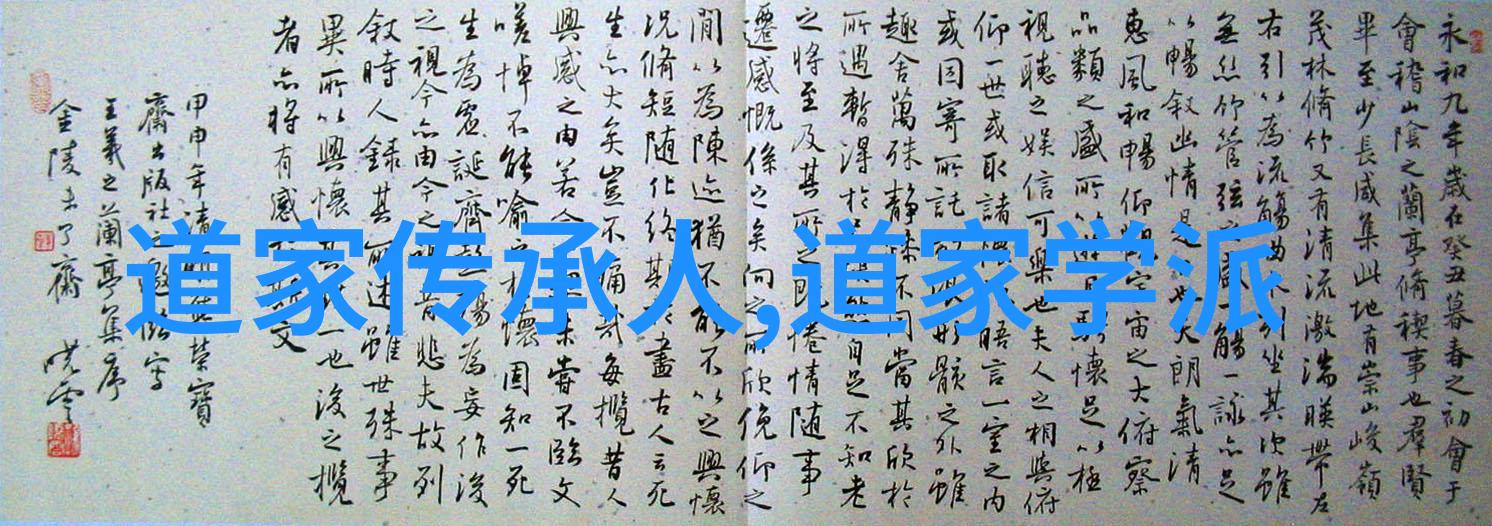 道家传承人,道家学派
永和九年歲在癸丑暮春之初會于
會稽山陰之蘭亭脩稧事也羣賢
畢至少長咸集此地有崇山峻嶺
茂林脩竹又有清流激湍暎帶左
右引以為流觴曲水列坐其次雖
無絲竹管弦之盛一觴一詠亦足
以暢敘幽情是日也天朗氣清
惠風和暢仰觀宇宙之大俯察
品類之盛所以遊目騁懷足以極
視聽之娛信可樂也夫人之相與俯
仰一世或取諸懷抱晤言一室之內
或因寄所託放浪形骸之外雖
趣舍萬殊靜躁不同當其欣於
所遇暫得於己快然自足不知老
之將至及其所之既倦情隨事
遷感慨係之矣向之所欣俛仰之
間以為陳迹猶不能不以之興懷
況脩短隨化終期於盡古人云死
生亦大矣豈不痛哉每攬昔人
興感之由若合一契未嘗不臨文
嗟悼不能喻之於懷固知一死
生為虛誕齊彭殤為妄作後
之視今亦由今之視昔悲夫故列
敘時人錄其所述雖世殊事
異所以興懷其致一也後之攬
者亦將有感於斯文
甲申年清 榮寶
齋出版社之邀 寫
王羲之蘭亭集序
金陵未了齋 曉雲